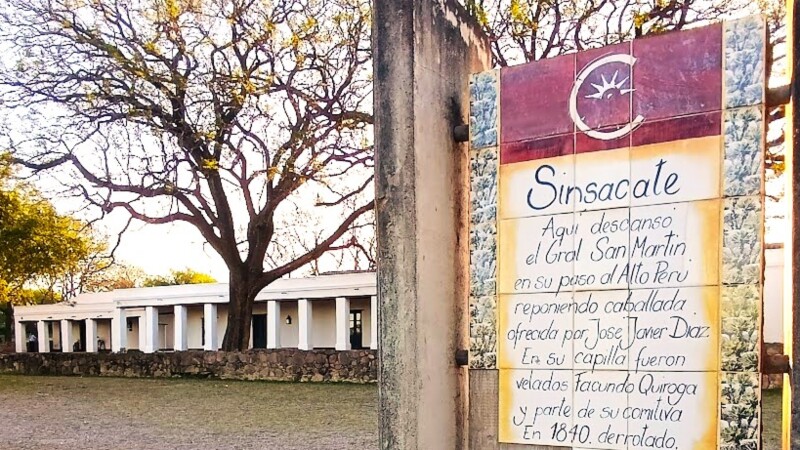 Sinsacate
Aquí descansó
el Gral San Martín
en su paso al Alto Perú
reponiendo caballada
ofrecida por José Javier Díaz
En su capilla fueron
velados Facundo Quiroga
y parte de su comitiva
En 1840, derrotado,